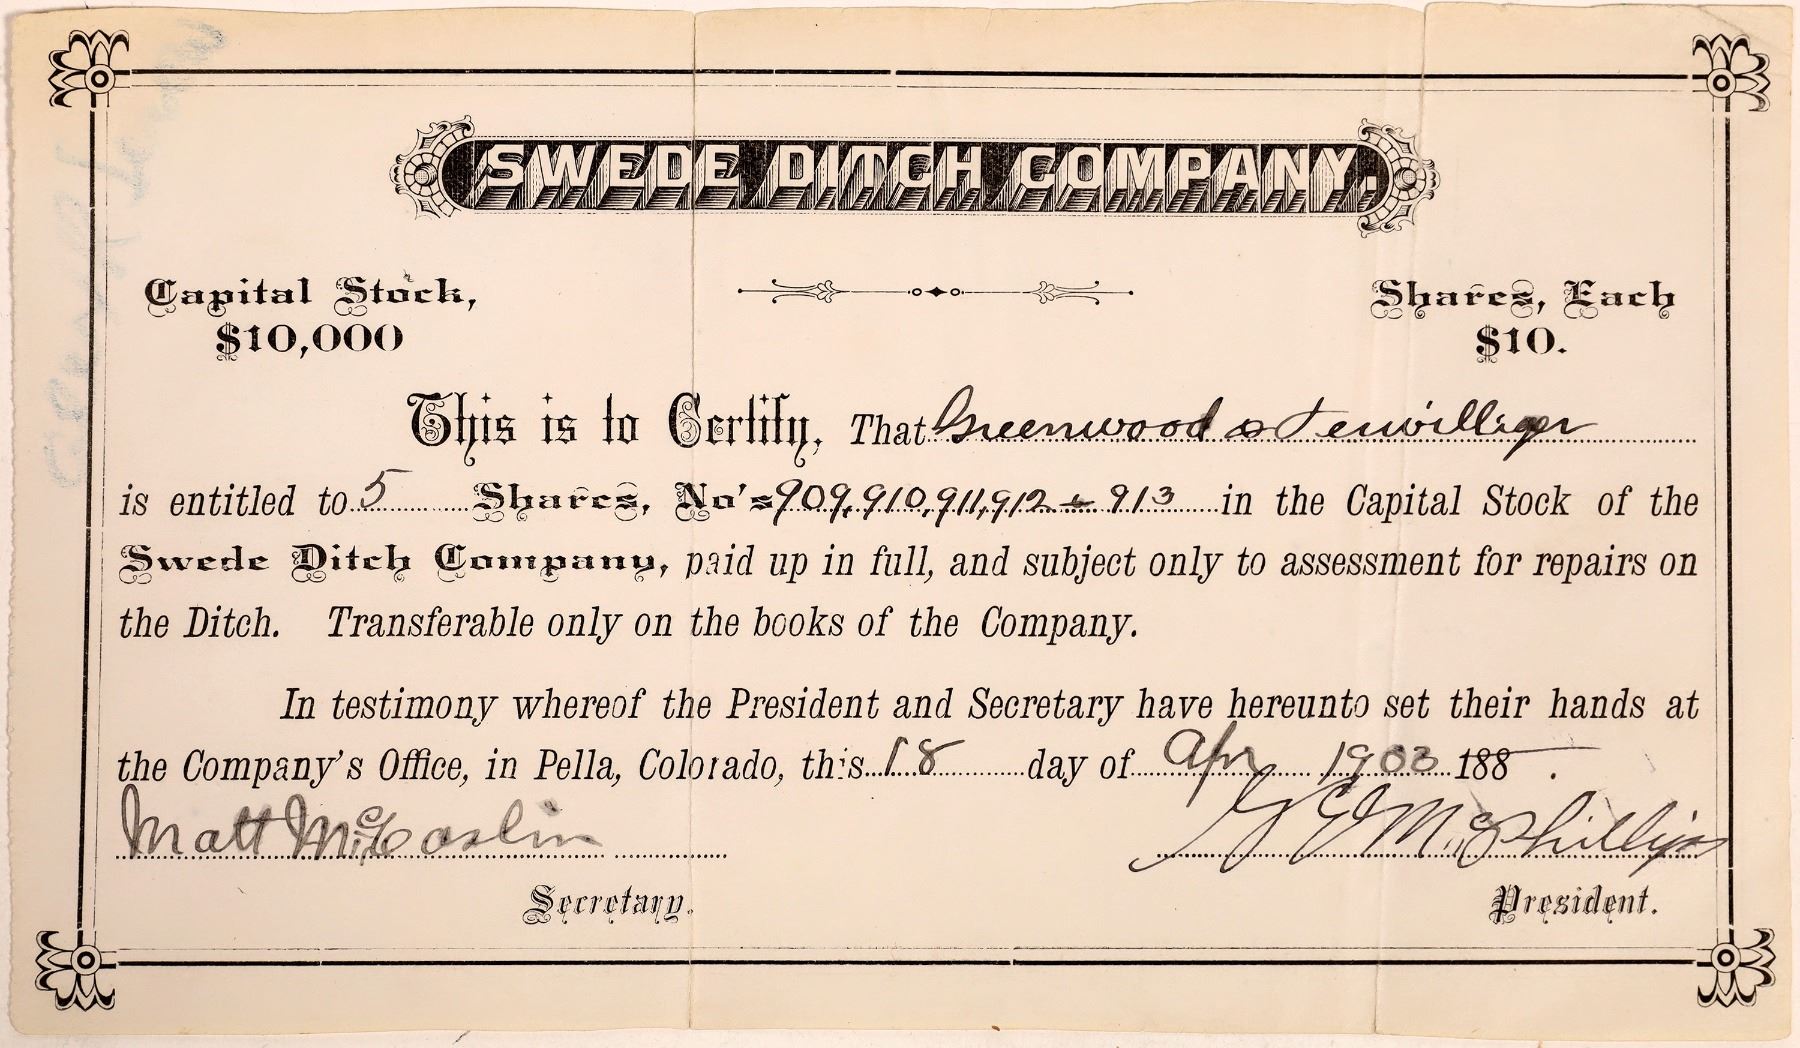 SWEDE DITCH COMPANY.
Capital Stock, Shares, Each
$10,000 $10.
This is to Certify, That Greenwood & Terwilliger
is entitled to 5 Shares, No's 909, 910, 911, 912 & 913 in the Capital Stock of the
Swede Ditch Company, paid up in full, and subject only to assessment for repairs on
the Ditch. Transferable only on the books of the Company.
In testimony whereof the President and Secretary have hereunto set their hands at
the Company's Office, in Pella, Colorado, this 18 day of Apr 1903 188 .
Matt McCaslin McPhillips
Secretary. President.